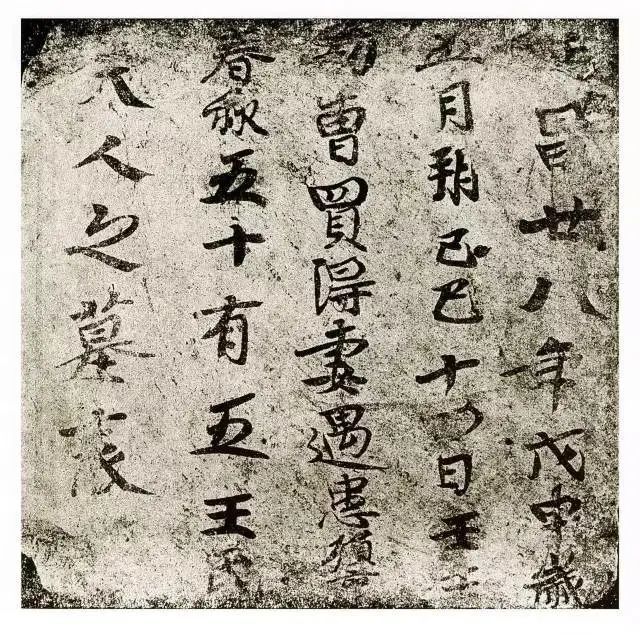 昌廿八年戊申歲
五月朔己巳十四日壬午
功曹買得妻遇患殞
春秋五十有五王氏
夫人之墓表